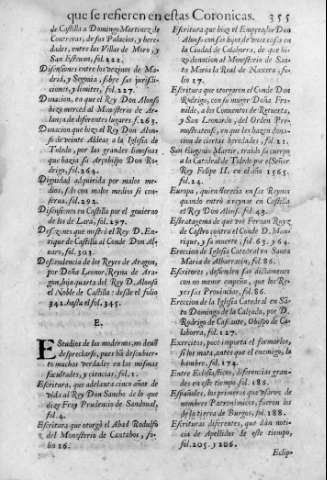 que se refieren en estas Coronicas. 355
de Castilla a Domingo Martinez de
Contreras, de sus Palacios, y here-
dades, entre las Villas de Muro, y
San Esteuan, fol. 222.
Disensiones entre los vezinos de Ma-
drid, y Segouia, sobre sus jurisdic-
ciones, y limites, fol. 227.
Donacion, en que el Rey Don Alonso
hizo merced al Monasterio de Ar-
lança, de diferentes lugares. f. 263.
Donacion que hizo el Rey Don Alon-
so de veinte Aldeas a la Iglesia de
Toledo, por las grandes limosnas
que hazia su Arçobispo Don Ro-
drigo, fol. 264.
Dignidad adquirida por malos me-
dios, solo con malos medios se con-
serua, fol. 292.
Disensiones en Castilla por el gouierno
de los de Lara, fol. 297.
Desdenes que mostrò el Rey D. En-
rique de Castilla al Conde Don Al-
uaro, fol. 303.
Descendencia de los Reyes de Aragon,
por Doña Leonor, Reyna de Ara-
gon, hija quarta del Rey D. Alonso
el Noble de Castilla: desde el folio
341. hasta el fol. 345.
E.
Estudios de los modernos, no deuen
despreciarse, pues hā descubier-
to muchas verdades en las mismas
facultades, y ciencias, fol. 1.
Escritura, que adelanta cinco años de
vida al Rey Don Sancho de lo que
dize Fray Prudencio de Sandoual,
fol. 4.
Escritura que otorgò el Abad Rodulfo
del Monasterio de Cantabos, fo-
lio 16.
Escritura que hizo el Emperador Don
Alonso con sus hijos
la Ciudad de Calahorra, de que hi-
zo donacion al Monasterio de San-
ta Maria la Real de Naxera, fo-
lio 17.
Escritura que otorgaron el Conde Don
Rodrigo, con su muger Doña Fro-
nilde, a los Conuentos de Retuerta,
y San Leonardo, del Orden Pre-
monstratense, en que les hazen dona-
cion de ciertas heredades, fol. 21.
San Eugenio Martir, traido su cuerpo
a la Catedral de Toledo por el Señor
Rey Felipe II. en el año 1565.
fol. 24.
Europa, quien Reynaua en sus Reynos
quando entrò a reynar en Castilla
el Rey Don Alonso, fol. 42.
Estratagema de que vsò Fernan Ruyz
de Castro contra el Conde D. Man-
rique, y su muerte, fol. 63. y 64.
Ereccion de la Iglesia Catedral en Santa
Maria de Albarracin, fol. 86.
Escritores, defienden sus dictamenes
con no menor empeño, que los Re-
yes sus Prouincias, fol. 86.
Ereccion de la Iglesia Catedral en Sā-
to Domingo de la Calçada, por D.
Rodrigo de Cascante, Obispo de Ca-
lahorra, fol. 127.
Exercitos, poco importa el formarlos,
si los mata, antes que el enemigo, la
hambre, fol. 174.
Entre Eclesiasticos, diferencias gran-
des en este tiempo fol. 186.
Españoles, los primeros que vsaron de
nombres Patronimicos, fueron los
de la tierra de Burgos, fol. 188.
Escrituras diferentes, que dàn noti-
cia de Apellidos de este tiempo,
fol. 205. y 206.
Eclip-